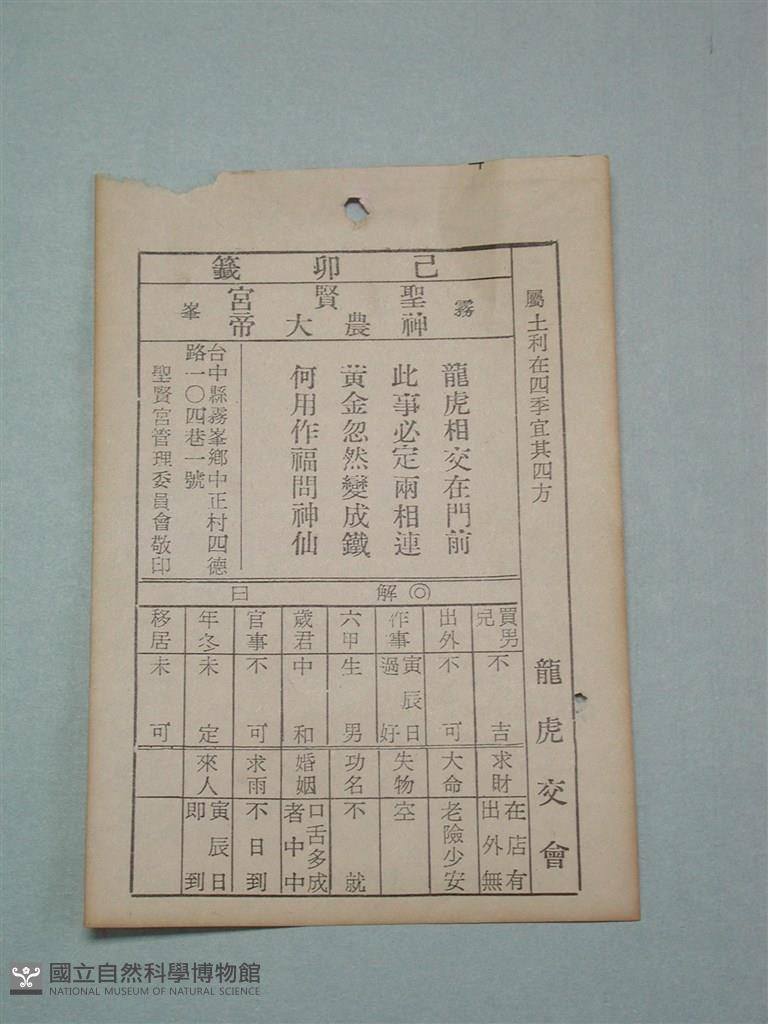 屬土利在四季宜其四方
龍虎交會
己卯籤
霧峯
聖賢宮
神農大帝
龍虎相交在門前
此事必定兩相連
黃金忽然變成鐵
何用作福問神仙
台中縣霧峯鄉中正村四德
路一〇四巷一號
聖賢宮管理委員會敬印
◎解曰
買男兒 不吉
出外 不可
作事 寅辰日過好
六甲 生男
歲君 中和
官事 不可
年冬 未定
移居 未可
求財 在店有出外無
大命 老險少安
失物 空
功名 不就
婚姻 口舌多成者中中
求雨 不日到
來人 寅辰日即到
國立自然科學博物館
NATIONAL MUSEUM OF NATURAL SCIENCE